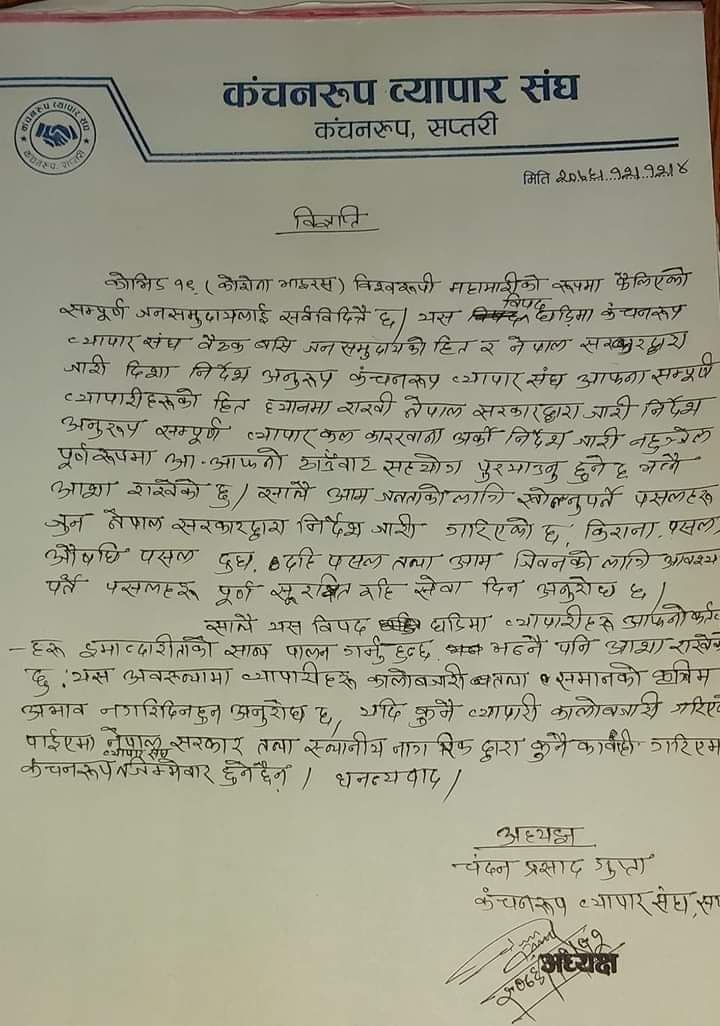 कंचनरुप व्यापार संघ
कंचनरुप, सप्तरी
कंचनरुप व्यापार संघ
कंचनरुप, सप्तरी
मिति २०७६।१२।१४
विज्ञप्ति
कोभिड १९ (कोरोना भाइरस) विश्वरूपी महामारीको रूपमा फैलिएको
सम्पूर्ण जनसमुदायलाई सर्वविदितै छ। यस विपद घडिमा कंचनरूप
व्यापार संघ बैठक बसि जनसमुदायको हित र नेपाल सरकारद्वारा
जारी दिशा निर्देश अनुरूप कंचनरूप व्यापार संघ आफ्ना सम्पूर्ण
व्यापारीहरूको हित ध्यानमा राखी नेपाल सरकारद्वारा जारी निर्देश
अनुरूप सम्पूर्ण व्यापार कल कारखाना अर्को निर्देश जारी नहुञ्जेल
पूर्णरूपमा आ-आफ्नो ठाउँबाट सहयोग पुर्‍याउनु हुनेछ भन्ने
आशा राखेको छु। साथै आम जनताको लागि खोल्नुपर्ने पसलहरू
जुन नेपाल सरकारद्वारा निर्देश जारी गरिएको छ, किराना पसल,
औषधि पसल दुध, दहि पसल तथा आम जिवनको लागि आवश्य
पर्ने पसलहरू पूर्ण सूरक्षित रहि सेवा दिन अनुरोध छ।
साथै यस विपद घडिमा व्यापारीहरू आफ्नो कर्तव
-हरू इमान्दारीताको साथ पालन गर्नु हुन्छ भन्ने पनि आशा राखेक
छु। यस अवस्थामा व्यापारीहरू कालोबजारी तथा समानको कृत्रिम
अभाव नगरिदिनहुन अनुरोध छ, यदि कुनै व्यापारी कालोबजारी गरिए
पाईएमा नेपाल सरकार तथा स्थानीय नागरिक द्वारा कुनै कार्वाही गरिएम
कंचनरूप व्यापार संघ जिम्मेवार हुनेछैन। धन्यवाद।
अध्यक्ष
चंदन प्रसाद गुप्ता
कंचनरूप व्यापार संघ, स
अध्यक्ष